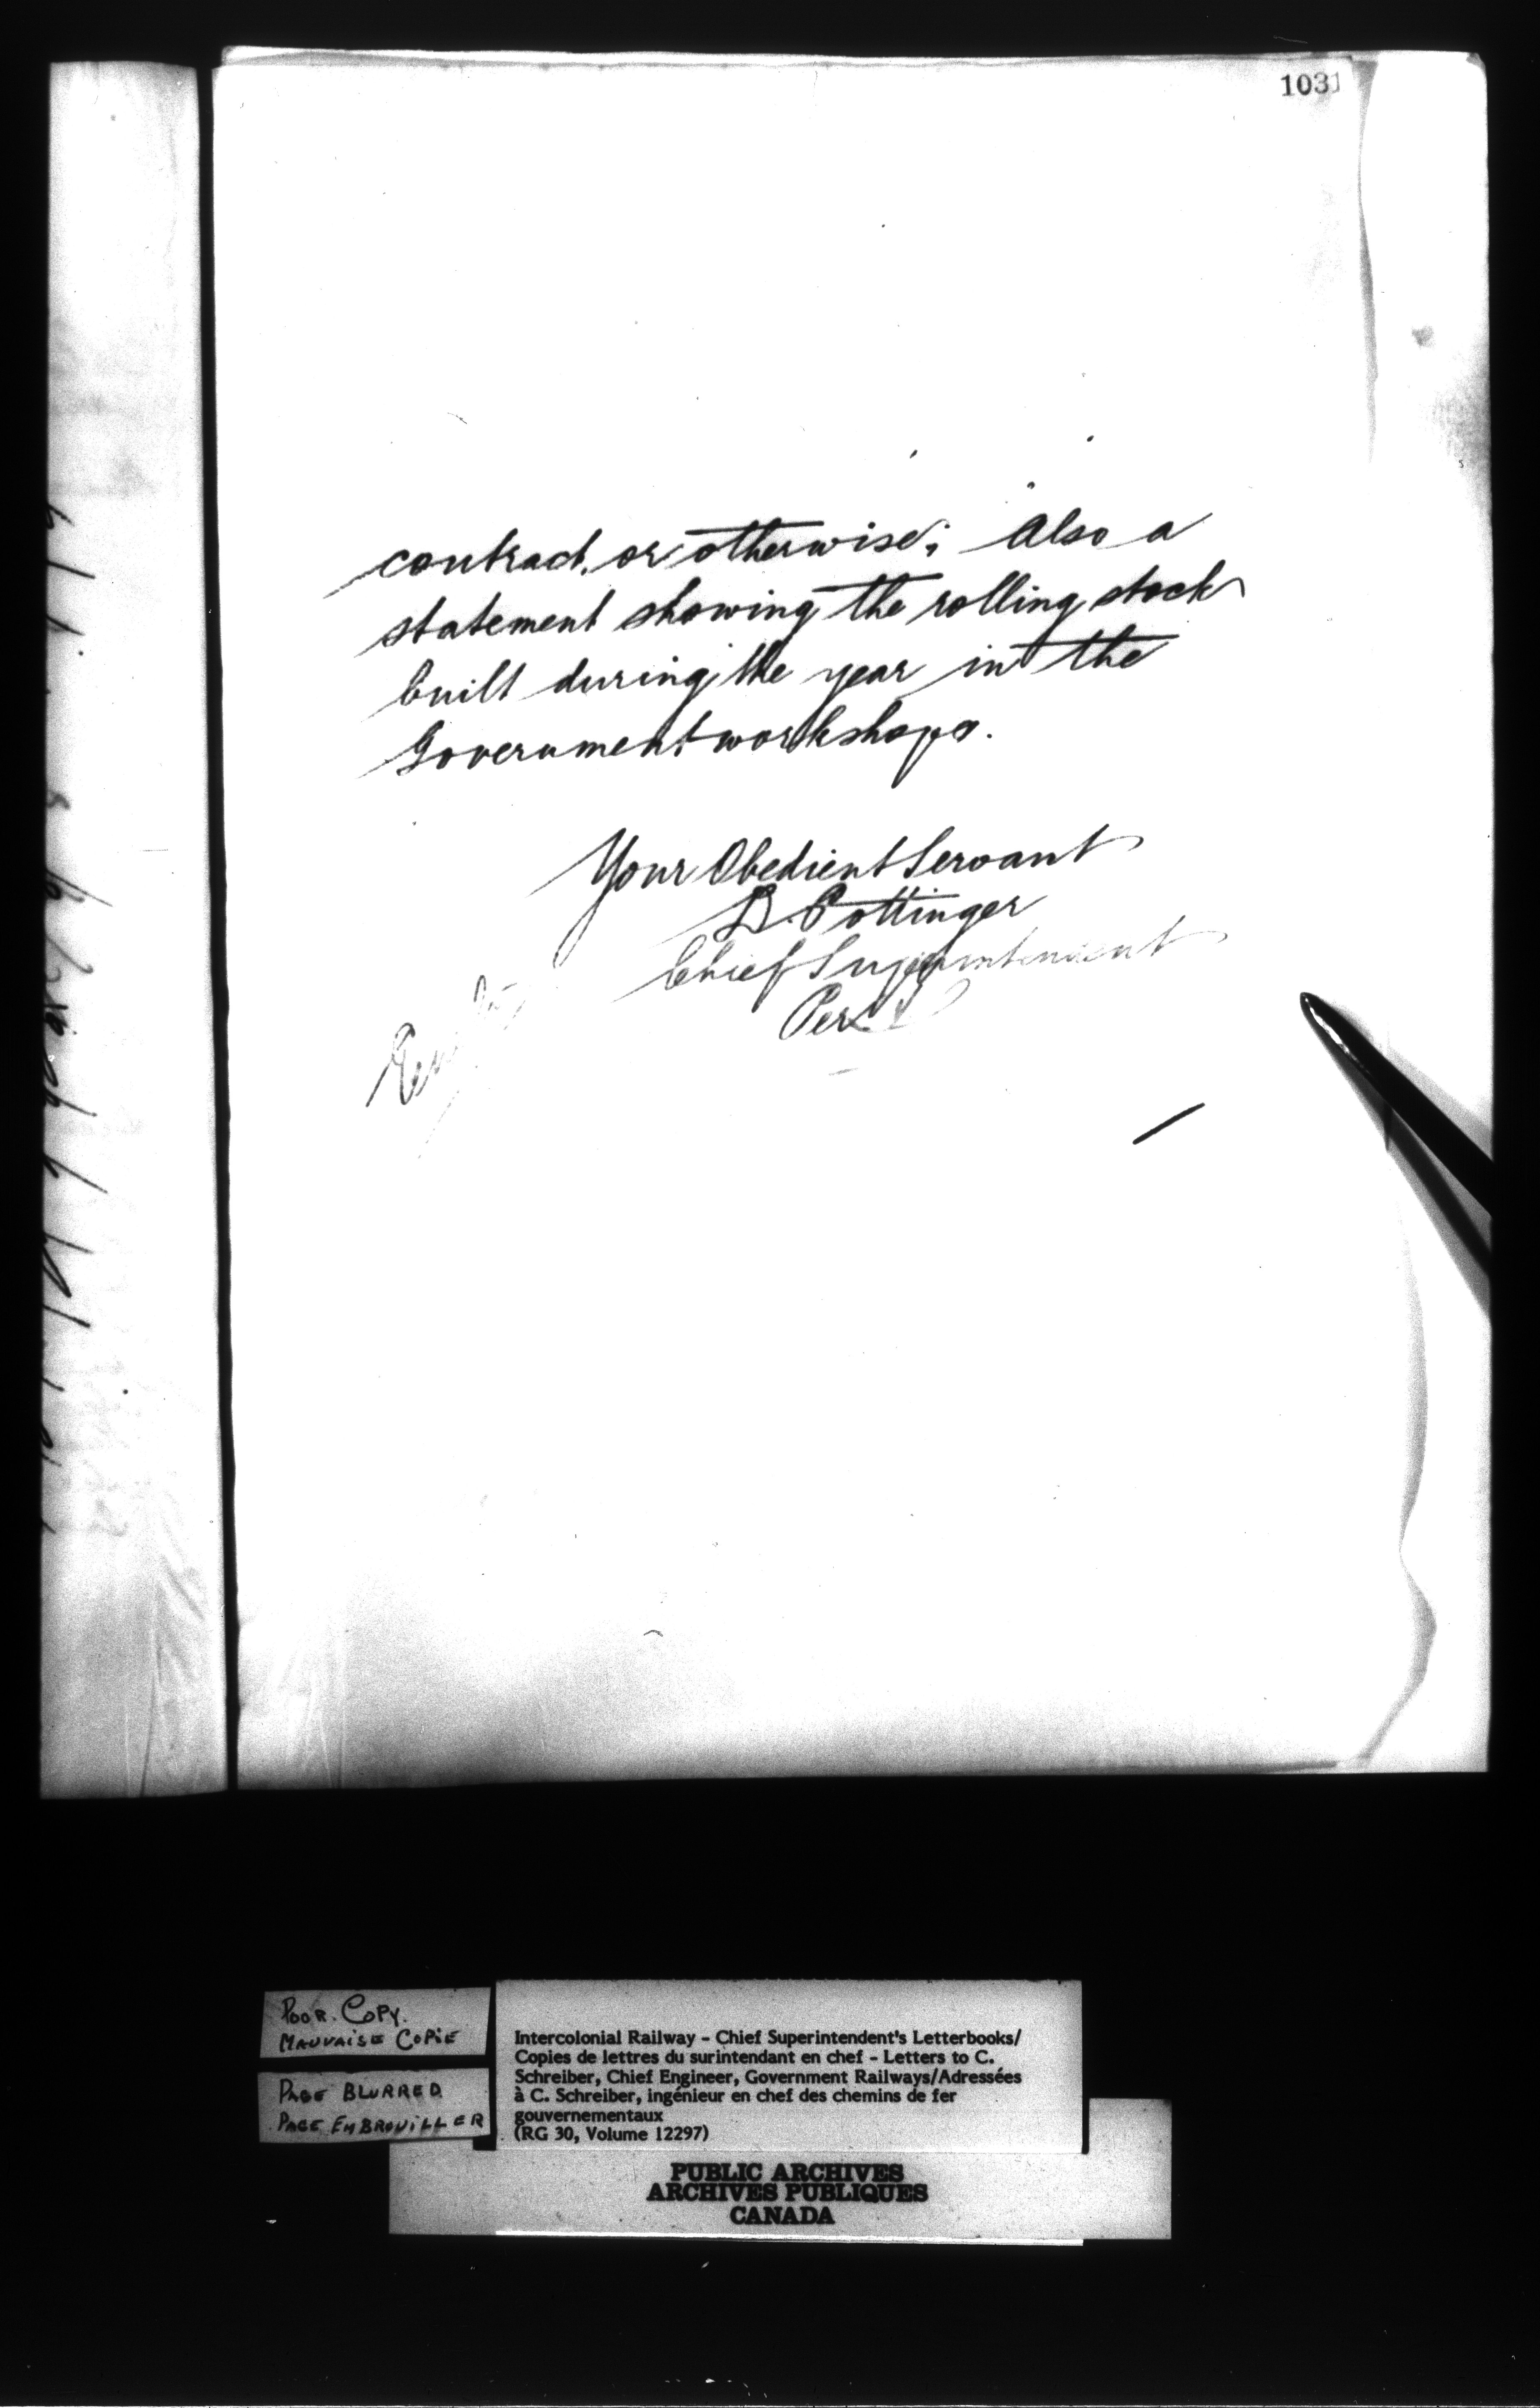 1031
contract, or otherwise; Also a
statement showing the rolling stock
built during the year in the
Government workshops.
Your Obedient Servant
D. Pottinger
Chief Superintendent
Per
POOR. COPY.
MAUVAISE COPIE
PAGE BLURRED
PAGE EMBROUILLER
Intercolonial Railway - Chief Superintendent's Letterbooks/
Copies de lettres du surintendant en chef - Letters to C.
Schreiber, Chief Engineer, Government Railways/Adressées
à C. Schreiber, ingénieur en chef des chemins de fer
gouvernementaux
(RG 30, Volume 12297)
PUBLIC ARCHIVES
ARCHIVES PUBLIQUES
CANADA